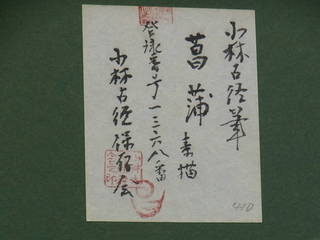 小林古径筆
菖蒲 素描
登録番号一三六八番
小林古径保存会